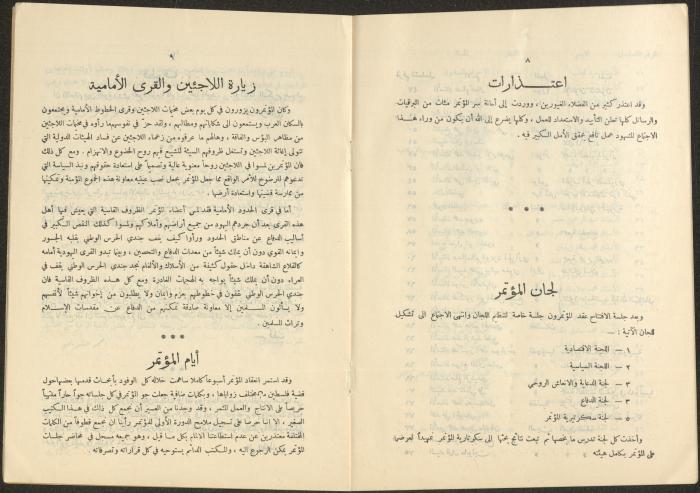 ٨
اعتذارات
وقد اعتذر كثير من الفضلاء الغيورين ، ووردت إلى أمانة سر المؤتمر مئات من البرقيات
والرسائل كلها تعلن التأييد والاستعداد للعمل ، وكلها يضرع إلى الله أن يكون من وراء هذا
الاجتماع المشهود عمل نافع يحقق الأمل الكبير فيه .
لجان المؤتمر
وبعد جلسة الافتتاح عقد المؤتمرون جلسة خاصة لتنظيم اللجان وانتهى الاجتماع الى تشكيل
اللجان الآتية : —
١ — اللجنة الاقتصادية
٢ — اللجنة السياسية
٣ — لجنة الدعاية والانعاش الروحي
٣ — لجنة الدفاع
٥ — لجنة سكرتيرية المؤتمر
وأخذت كل لجنة تدرس ما يخصها ثم تبعث نتائج بحثها إلى سكرتارية المؤتمر تمهيداً لعرضها
على المؤتمر بكامل هيئته
٩
زيارة اللاجئين والقرى الأمامية
وكان المؤتمرون يزورون في كل يوم بعض مخيمات اللاجئين وقرى الخطوط الأمامية ويجتمعون
بالسكان العرب ويستمعون الى شكاياتهم ومطالبهم ، ولقد حز في نفوسهم ما رأوه في مخيمات اللاجئين
من مظاهر البؤس والفاقة ، وهالهم ما عرفوه من زعماء اللاجئين عن فساد الهيئات الدولية التي
تتولى إغاثة اللاجئين وتستغل ظروفهم السيئة لتشيع فيهم روح الخضوع والانهزام . ومع كل ذلك
فان المؤتمرين لمسوا في اللاجئين روحاً معنوية عالية وتصميماً على استعادة حقوقهم ونبذ السياسة التي
تدعوهم للرضوخ للأمر الواقع مما جعل المؤتمر يجعل نصب عينيه معاونة هذه الجموع المؤمنة وتمكينها
من ممارسة قضيتها واستعادة أرضها .
أما في قرى الحدود الأمامية فقد لمس أعضاء المؤتمر الظروف القاسية التي يعيش فيها أهل
هذه القرى بعد أن جردهم اليهود من جميع أراضيهم وأملاكهم ولمسوا كذلك النقص الكبير في
أساليب الدفاع عن مناطق الحدود ورأوا كيف يقف جندي الحرس الوطني بقلبه الجسور
وإيمانه القوي دون أن يملك شيئاً من معدات الدفاع والتحصين ، وبينما تبدو القرى اليهودية أمامه
كالقلاع الشاهقة داخل حقول كثيفة من الأسلاك والألغام تجد جندي الحرس الوطني يقف في
العراء دون أن يملك شيئاً يواجه به الهجمات الغادرة ومع كل هذه الظروف القاسية فان
جندي الحرس الوطني يقفون في خطوطهم بعزم وإيمان ولا يطلبون من إخوانهم شيئاً لأنفسهم
ولا يسألون المسلمين إلا معاونة صادقة تمكنهم من الدفاع عن مقدسات الإسلام
وتراث المسلمين .
أيام المؤتمر
وقد استمر انعقاد المؤتمر أسبوعاً كاملا ساهمت خلاله كل الوفود بأبحاث قدمها بعضها حول
قضية فلسطين من مختلف زواياها ، وبكلمات ضافية جعلت جو المؤتمر في كل جلساته جواً حاراً مفعماً
حريصاً على الانتاج والعمل المثمر ، وقد وجدنا من العسير أن نجمع كل ذلك في هذا الكتيب
الصغير ، الا اننا حرصاً على تسجيل ملامح الدورة الأولى للمؤتمر رأينا ان نجمع قطوفاً من الكلمات
المختلفة معتذرين عن عدم استطاعتنا الالمام بكل ما قيل ، وهو جميعه مسجل في محاضر جلسات
المؤتمر يمكن الرجوع اليه ، وللمكتب الدائم يستوحيه في كل قراراته وتصرفاته .